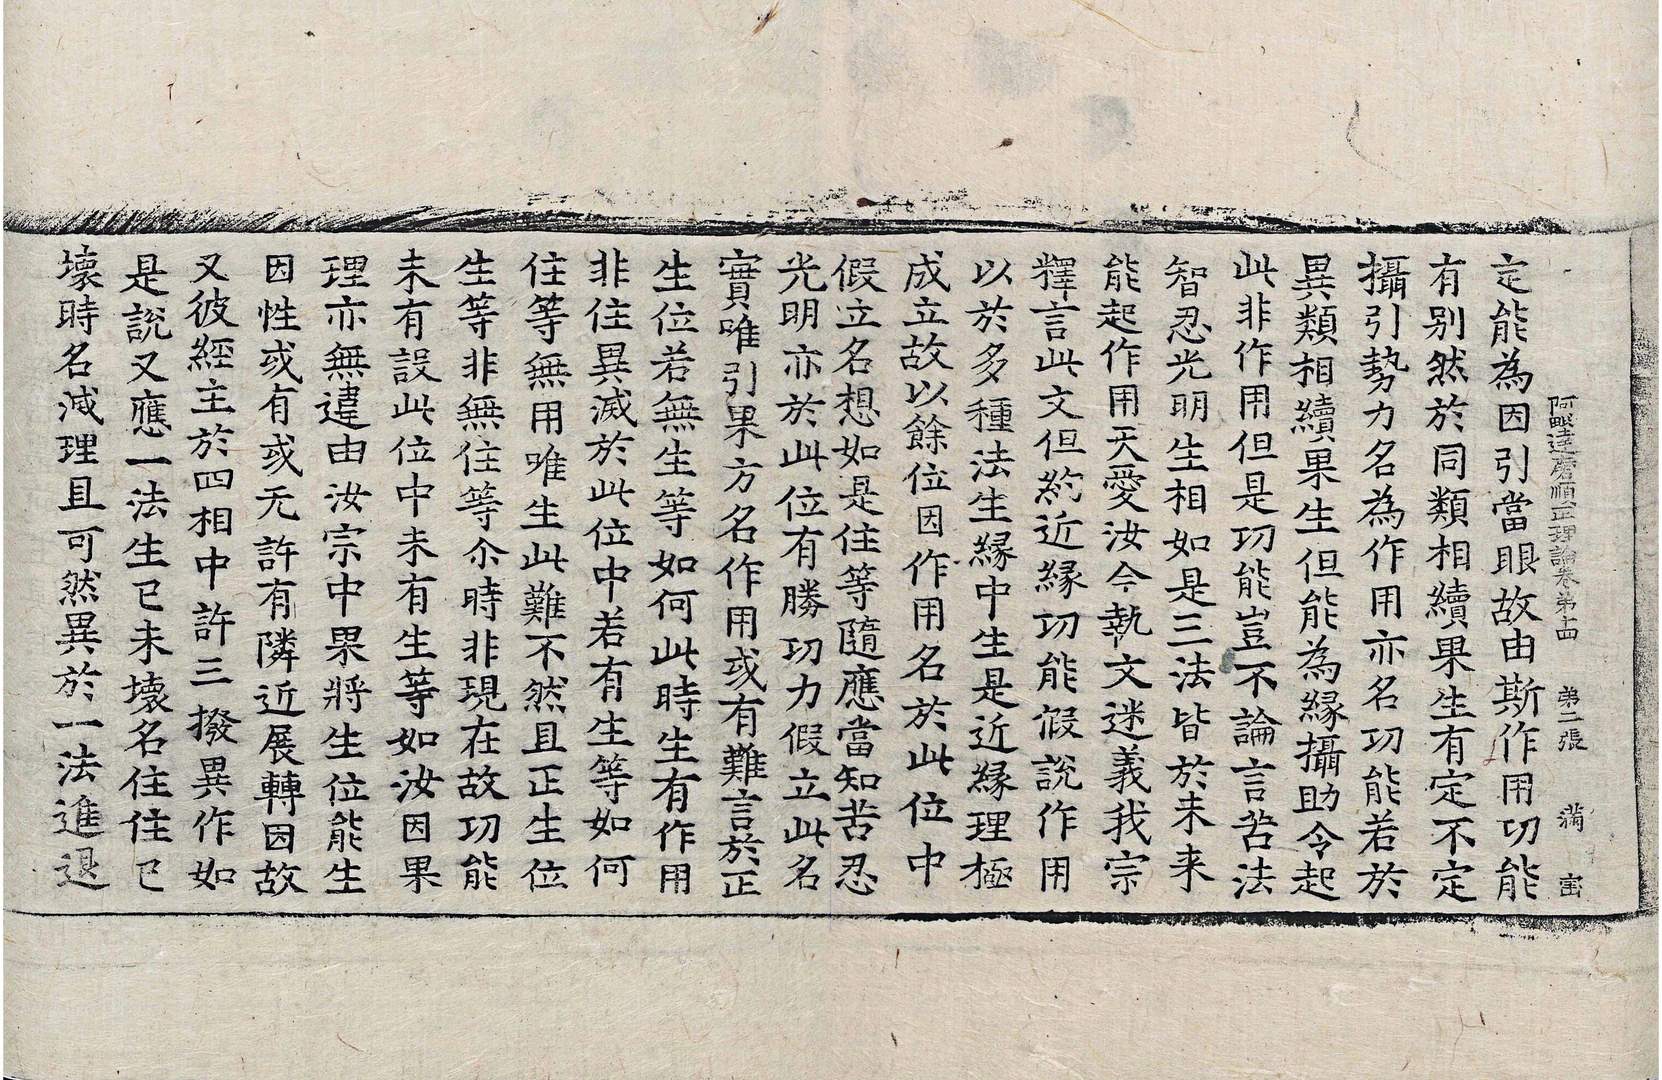 阿毗達磨順正理論卷第十四 第二張 滿
定能為因引當眼故由斯作用功能
有別然於同類相續果生有定不定
攝引勢力名為作用亦名功能若於
異類相續果生但能為緣攝助令起
此非作用但是功能豈不論言苦法
智忍光明生相如是三法皆於未来
能起作用天愛汝今執文迷義我宗
釋言此文但約近緣功能假說作用
以於多種法生緣中生是近緣理極
成立故以餘位因作用名於此位中
假立名想如是住等隨應當知苦忍
光明亦於此位有勝功力假立此名
實唯引果方名作用或有難言於正
生位若無生等如何此時生有作用
非住異滅於此位中若有生等如何
住等無用唯生此難不然且正生位
生等非無住等尒時非現在故功能
未有設此位中未有生等如汝因果
理亦無違由汝宗中果將生位能生
因性或有或无許有隣近展轉因故
又彼經主於四相中許三撥異作如
是說又應一法生已未壞名住住已
壞時名滅理且可然異於一法進退